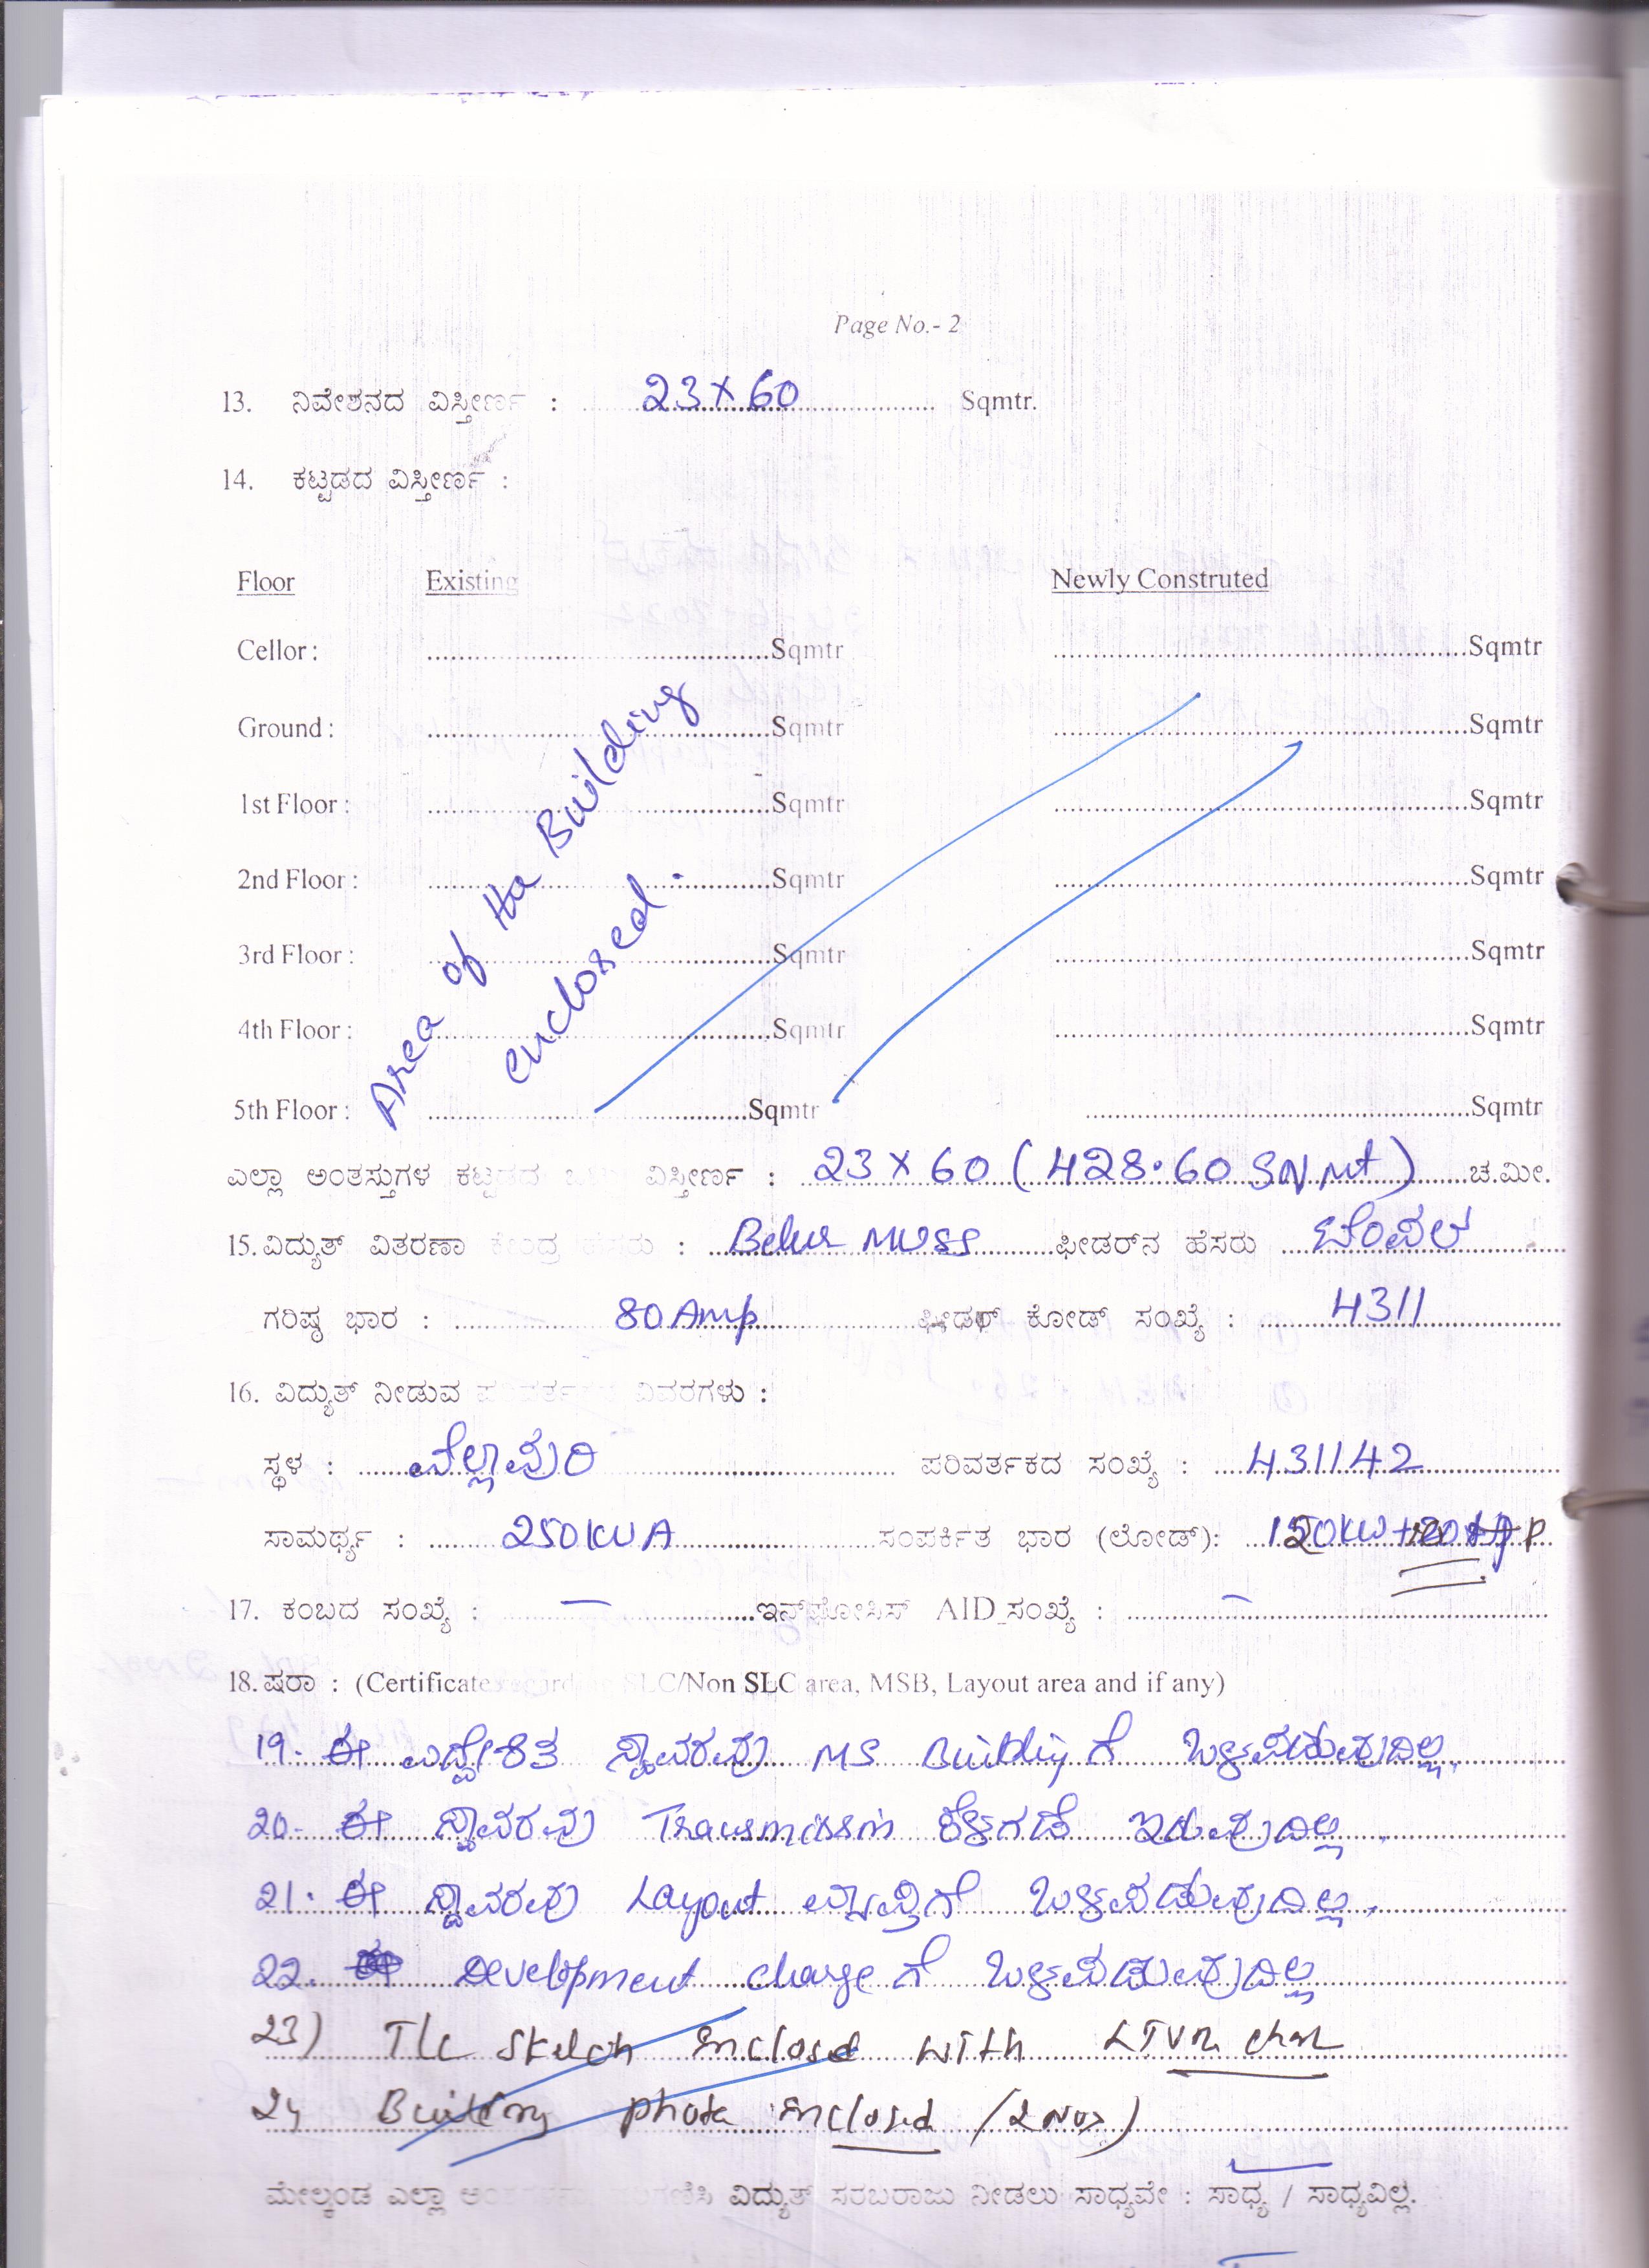 Page No.- 2
13. ನಿವೇಶನದ ವಿಸ್ತೀರ್ಣ : 23 x 60 Sqmtr.
14. ಕಟ್ಟಡದ ವಿಸ್ತೀರ್ಣ :
Floor Existing Newly Construted
Cellor : Sqmtr Sqmtr
Ground : Sqmtr Sqmtr
1st Floor : Sqmtr Sqmtr
2nd Floor : Sqmtr Sqmtr
3rd Floor : Sqmtr Sqmtr
4th Floor : Sqmtr Sqmtr
5th Floor : Sqmtr Sqmtr
Area of the Building
enclosed.
ಎಲ್ಲಾ ಅಂತಸ್ತುಗಳ ಕಟ್ಟಡದ ವಿಸ್ತೀರ್ಣ : 23 x 60 (428.60 ಚ.ಮೀ.
15. ವಿದ್ಯುತ್ ವಿತರಣಾ ಕೇಂದ್ರ : Belur MUSS ಫೀಡರ್‌ನ ಹೆಸರು
ಗರಿಷ್ಠ ಭಾರ : 80 Amp ಫೀಡರ್ ಕೋಡ್ ಸಂಖ್ಯೆ : 4311
16. ವಿದ್ಯುತ್ ನೀಡುವ ವಿವರಗಳು :
ಸ್ಥಳ : ಪರಿವರ್ತಕದ ಸಂಖ್ಯೆ : 431142
ಸಾಮರ್ಥ್ಯ : 250 KVA ಸಂಪರ್ಕಿತ ಭಾರ (ಲೋಡ್):
17. ಕಂಬದ ಸಂಖ್ಯೆ : — ಇನ್ಫೋಸಿಸ್ AID ಸಂಖ್ಯೆ : —
18. ಷರಾ : (Certificate SLC/Non SLC area, MSB, Layout area and if any)
19. ಈ ಸ್ಥಾವರವು MS Building ಗೆ ಒಳಪಡುವುದಿಲ್ಲ.
20. ಈ ಸ್ಥಾವರವು Transmission ಕೆಳಗಡೆ ಇರುವುದಿಲ್ಲ.
21. ಈ ಸ್ಥಾವರವು Layout ವ್ಯಾಪ್ತಿಗೆ ಒಳಪಡುವುದಿಲ್ಲ.
22. Development charge ಗೆ ಒಳಪಡುವುದಿಲ್ಲ
23) Sketch Enclosed with LTVR
24 Building photo Enclosed (2 Nos)
ಮೇಲ್ಕಂಡ ಎಲ್ಲಾ ವಿದ್ಯುತ್ ಸರಬರಾಜು ನೀಡಲು ಸಾಧ್ಯವೇ : ಸಾಧ್ಯ / ಸಾಧ್ಯವಿಲ್ಲ.